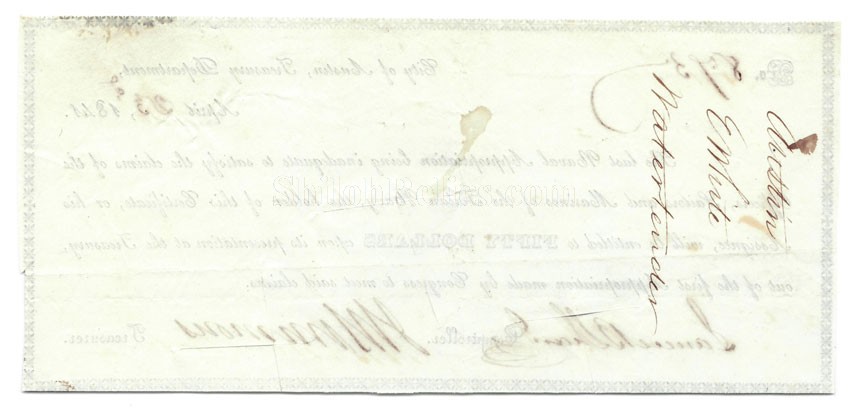 No. 893
City of Austin, Treasury Department,
April 23, 1841.
last Naval Appropriation being inadequate to satisfy the claims of the
Sailors and Marines of the Navy, the Holder of this Certificate, or his
Assignee, will entitled to FIFTY DOLLARS upon its presentation at the Treasury,
out of the first appropriation made by Congress to meet said claims.
Comptroller. Treasurer.
E White
Watertender